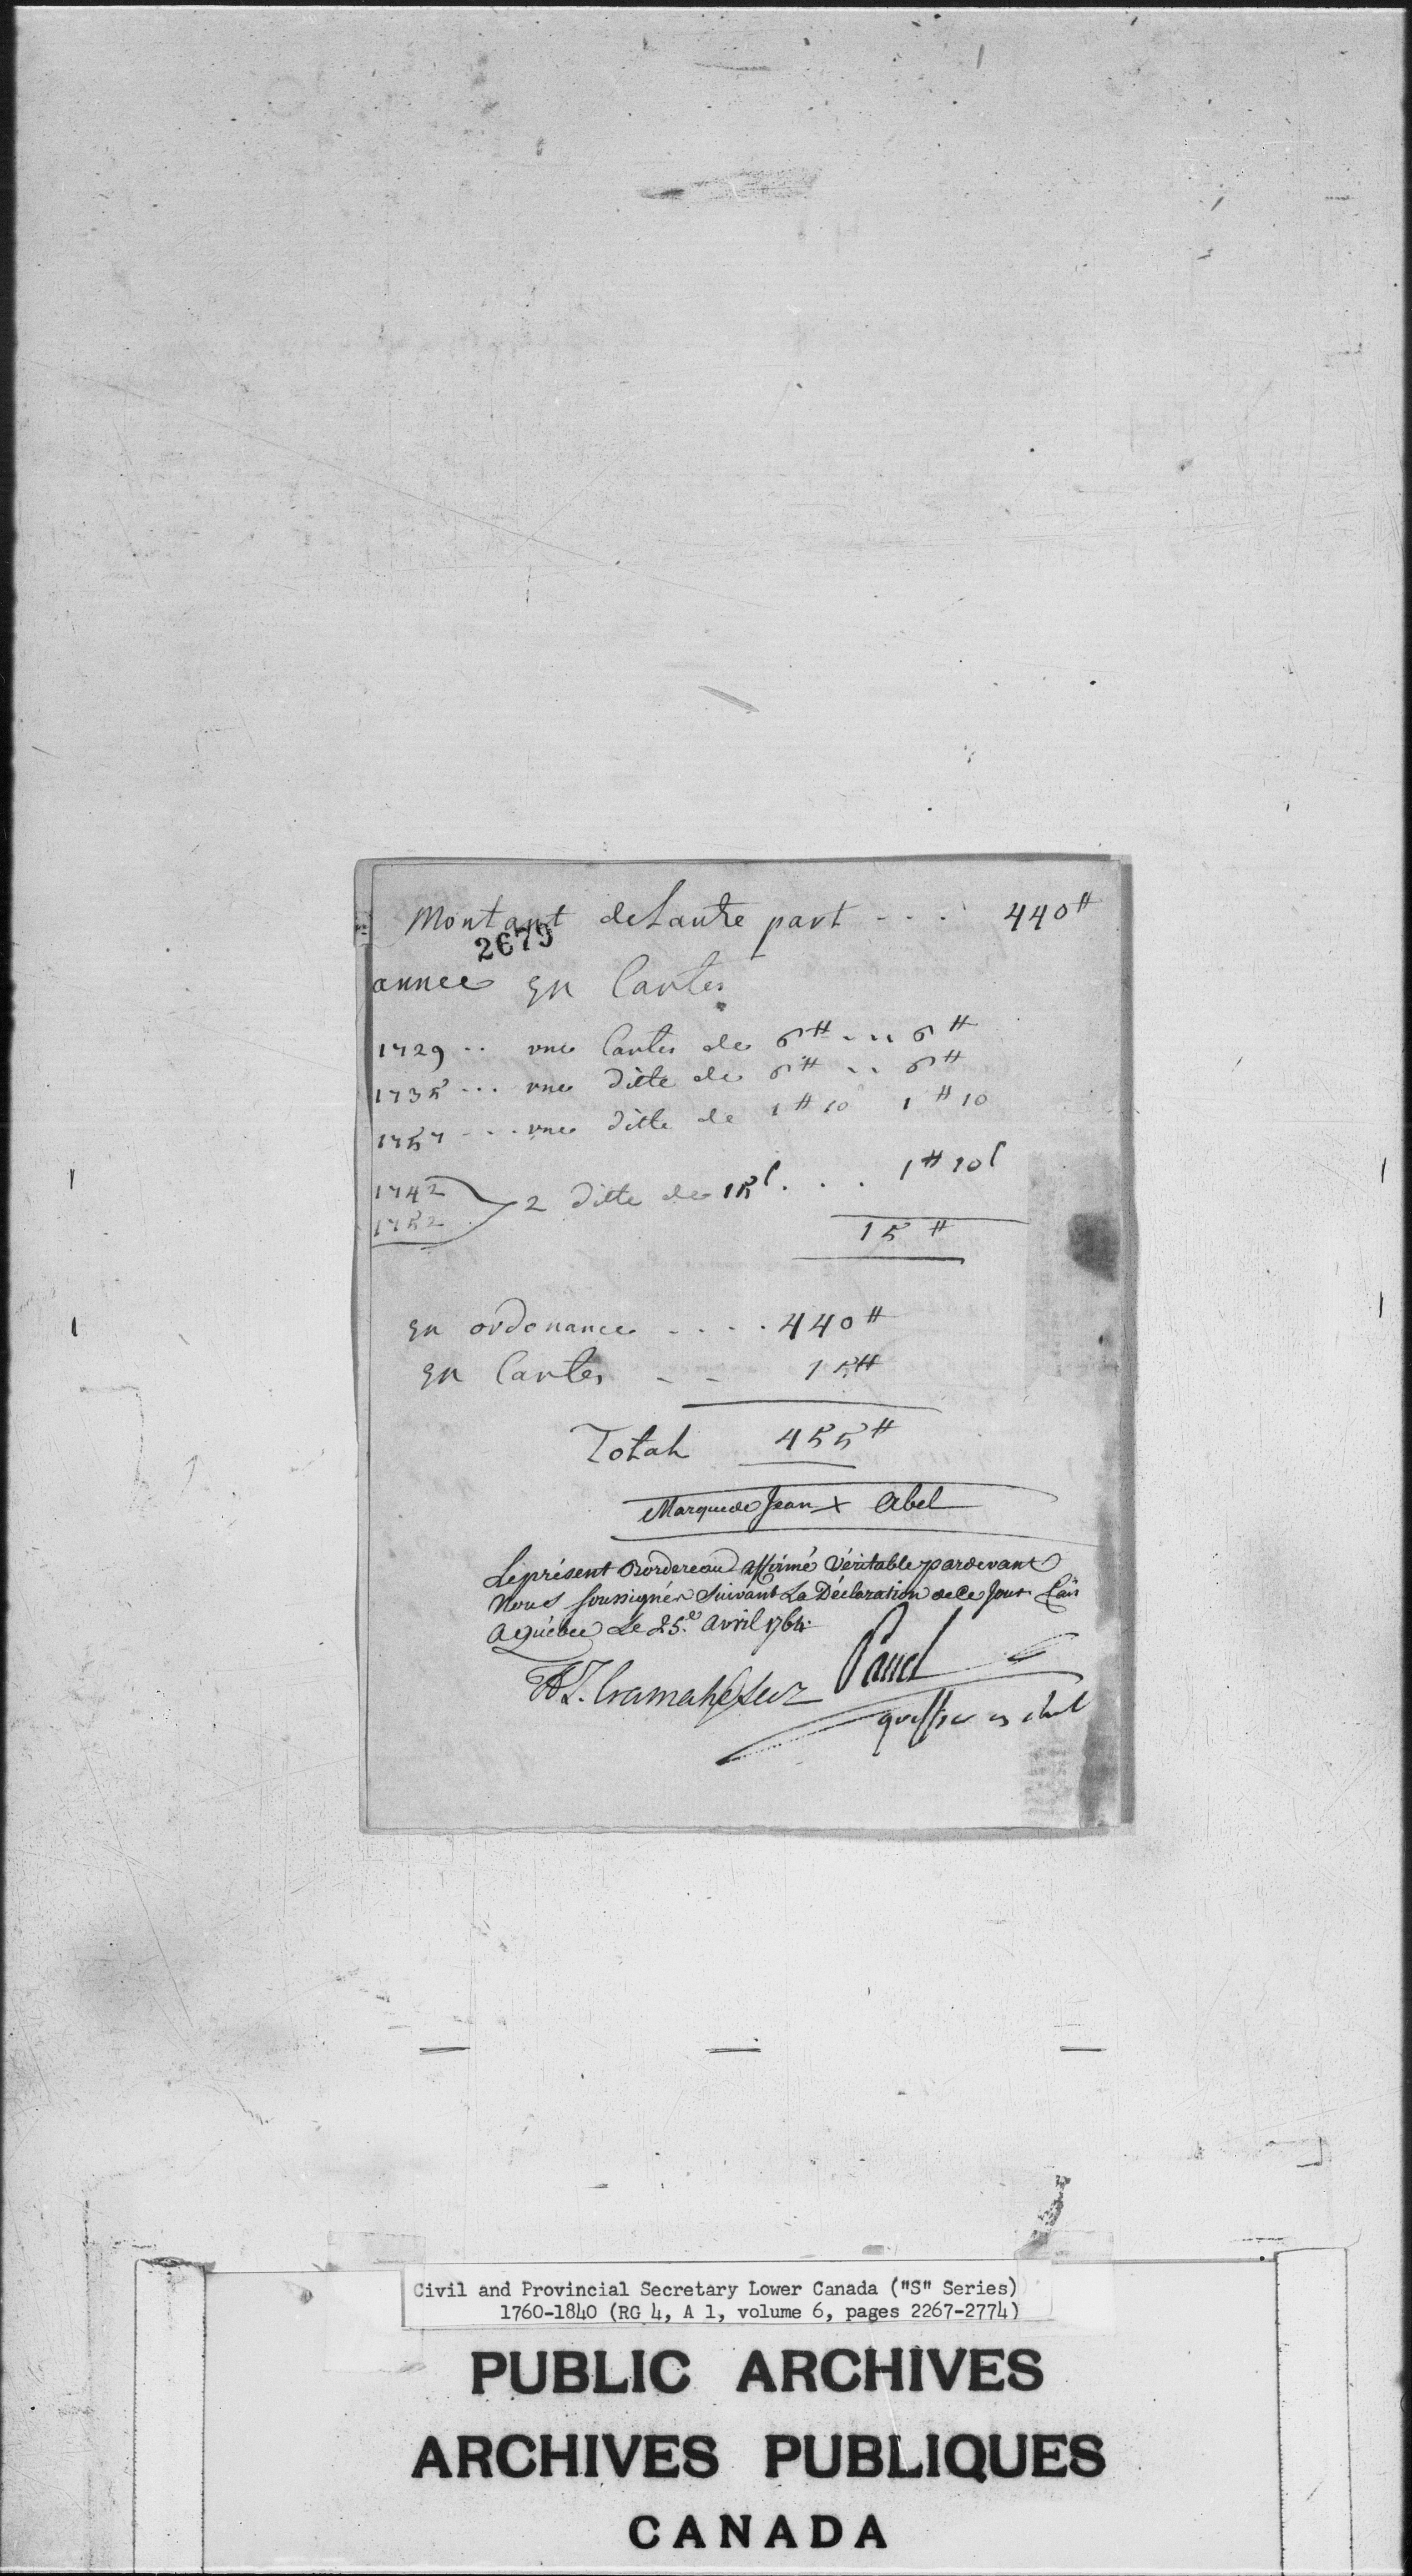 Montant de Lautre part - - - 440#
2679
annee En Cartes
1729 .. une Cartes de 6# . .. 6#
1735 ... une ditte de 6# .. 6#
1757 - . . une ditte de 1#10 1#10
1742
1752 2 ditte de 15s . . . 1#10s
15#
En ordonance . . . . 440#
En Cartes - - 15#
Total 455#
Marque de Jean x Abel
Le présent Bordereau affirmé Véritable pardevant
Nous soussignés suivant La Déclaration de Ce Jour Fait
a Québec Le 25.e Avril 1764.
H T. Cramahé Secr Panet
greffier
Civil and Provincial Secretary Lower Canada ("S" Series)
1760-1840 (RG 4, A 1, volume 6, pages 2267-2774)
PUBLIC ARCHIVES
ARCHIVES PUBLIQUES
CANADA